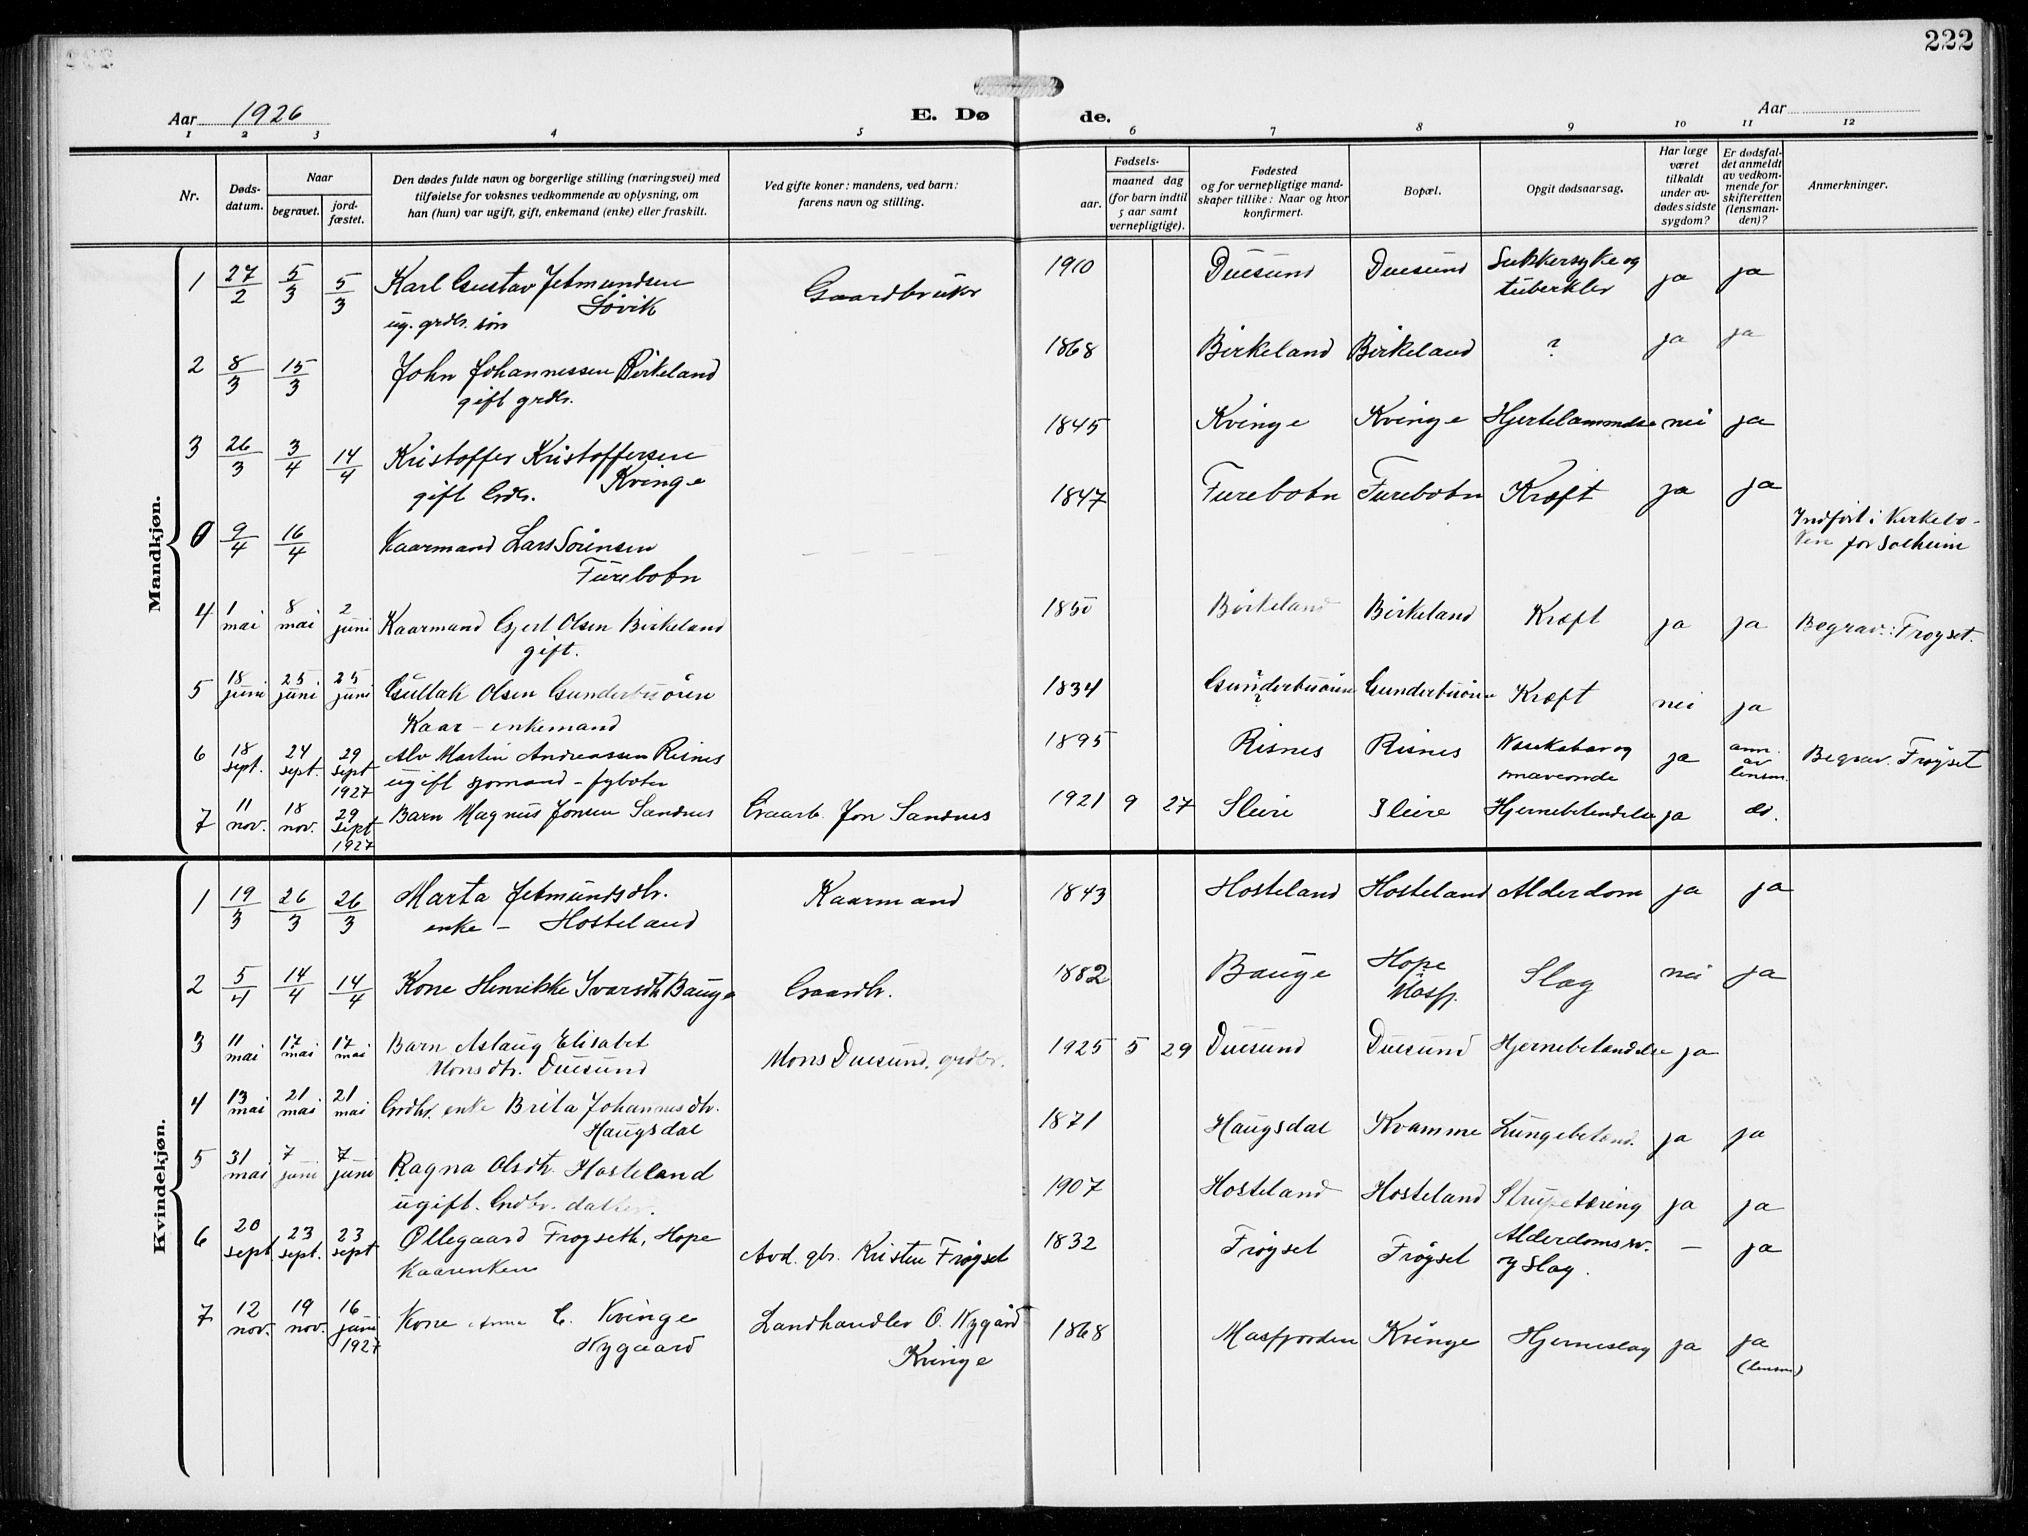 222
Aar 1926
E. Dø de.
Aar
1 2 3 4 5 6 7 8 9 10 11 12
Nr.
Døds-
datum.
Naar
begravet.
jord-
fæstet.
Den dødes fulde navn og borgerlige stilling (næringsvei) med
tilføielse for voksnes vedkommende av oplysning, om
han (hun) var ugift, gift, enkemand (enke) eller fraskilt.
Ved gifte koner: mandens, ved barn:
farens navn og stilling.
Fødsels-
aar.
maaned dag
(for barn indtil
5 aar samt
vernepligtige).
Fødested
og for vernepligtige mand-
skaper tillike: Naar og hvor
konfirmert.
Bopæl.
Opgit dødsaarsag.
Har læge
været
tilkaldt
under av-
dødes sidste
sygdom?
Er dødsfal-
det anmeldt
av vedkom-
mende for
skifteretten
(lensman-
den)?
Anmerkninger.
Mandkjøn.
1 27/2 5/3 5/3 Karl Gustav Jetmundsen Gaardbruker 1910 Duesund Duesund Sukkersyke og ja ja
Søvik tuberkler
ug. grdbr. søn
2 8/3 15/3 John Johannessen Birkeland 1868 Birkeland Birkeland ? ja ja
gift grdbr.
3 26/3 3/4 14/4 Kristoffer Kristoffersen 1845 Kvinge Kvinge Hjertelammelse nei ja
gift Grdbr. Kvinge
0 9/4 16/4 Kaarmand Lars Sørensen — — — — 1847 Furebotn Furebotn Kræft ja ja Indført i Kirkebo-
Furebotn ken for Solheim
4 1 mai 8 mai 2 juni Kaarmand Gjert Olsen Birkeland 1850 Birkeland Birkeland Kræft ja ja Begrav. Frøyset.
gift.
5 18 juni 25 juni 25 juni Gullak Olsen Gunderbuøren 1834 Gunderbuøren ? Gunderbuøren Kræft nei ja
Kaar – enkemand
6 18 sept. 24 sept. 29 sept 1927 Alv Martin Andreassen Risnes 1895 Risnes Risnes og ja anm. av lensm. Begrav. Frøyset
ugift sjømand – fyrbøter
7 11 nov. 18 nov. 29 sept 1927 Barn Magnus Jonsen Sandnes Gaardb. Jon Sandnes 1921 9 27 Sleire Sleire Hjernebetendelse ja do.
Kvindekjøn.
1 19/3 26/3 26/3 Marta Jetmundsdtr. Kaarmand 1843 Hosteland Hosteland Alderdom ja ja
enke – Hosteland
2 5/4 14/4 14/4 Kone Henrikke Ivarsdtr Bauge Gaardbr. 1882 Bauge Hope Slag nei ja
Masfj.
3 11 mai 17 mai 17 mai Barn Aslaug Elisabet Mons Duesund, grdbr. 1925 5 29 Duesund Duesund Hjernebetændelse ja
Monsdtr. Duesund
4 13 mai 21 mai 21 mai Grdbr. enke Brita Johannesdtr. 1871 Haugsdal Kvamme Lungebetænd. ja ja
Haugsdal
5 31 mai 7 juni 7 juni Ragna Olsdtr. Hosteland 1907 Hosteland Hosteland Strupetæring ja ja
ugift. Grdbr. datter.
6 20 sept. 23 sept. 23 sept Øllegaard Frøyseth, Hope Avd. gbr. Kristen Frøyset 1832 Frøyset Frøyset Alderdomssv. — ja
Kaarenken og Slag.
7 12 nov. 19 nov. 16 juni 1927 Kone Anna C. Kvinge Landhandler O. Nygård 1868 Masfjorden Kvinge Hjerneslag ja ja
Nygaard Kvinge (lensm)